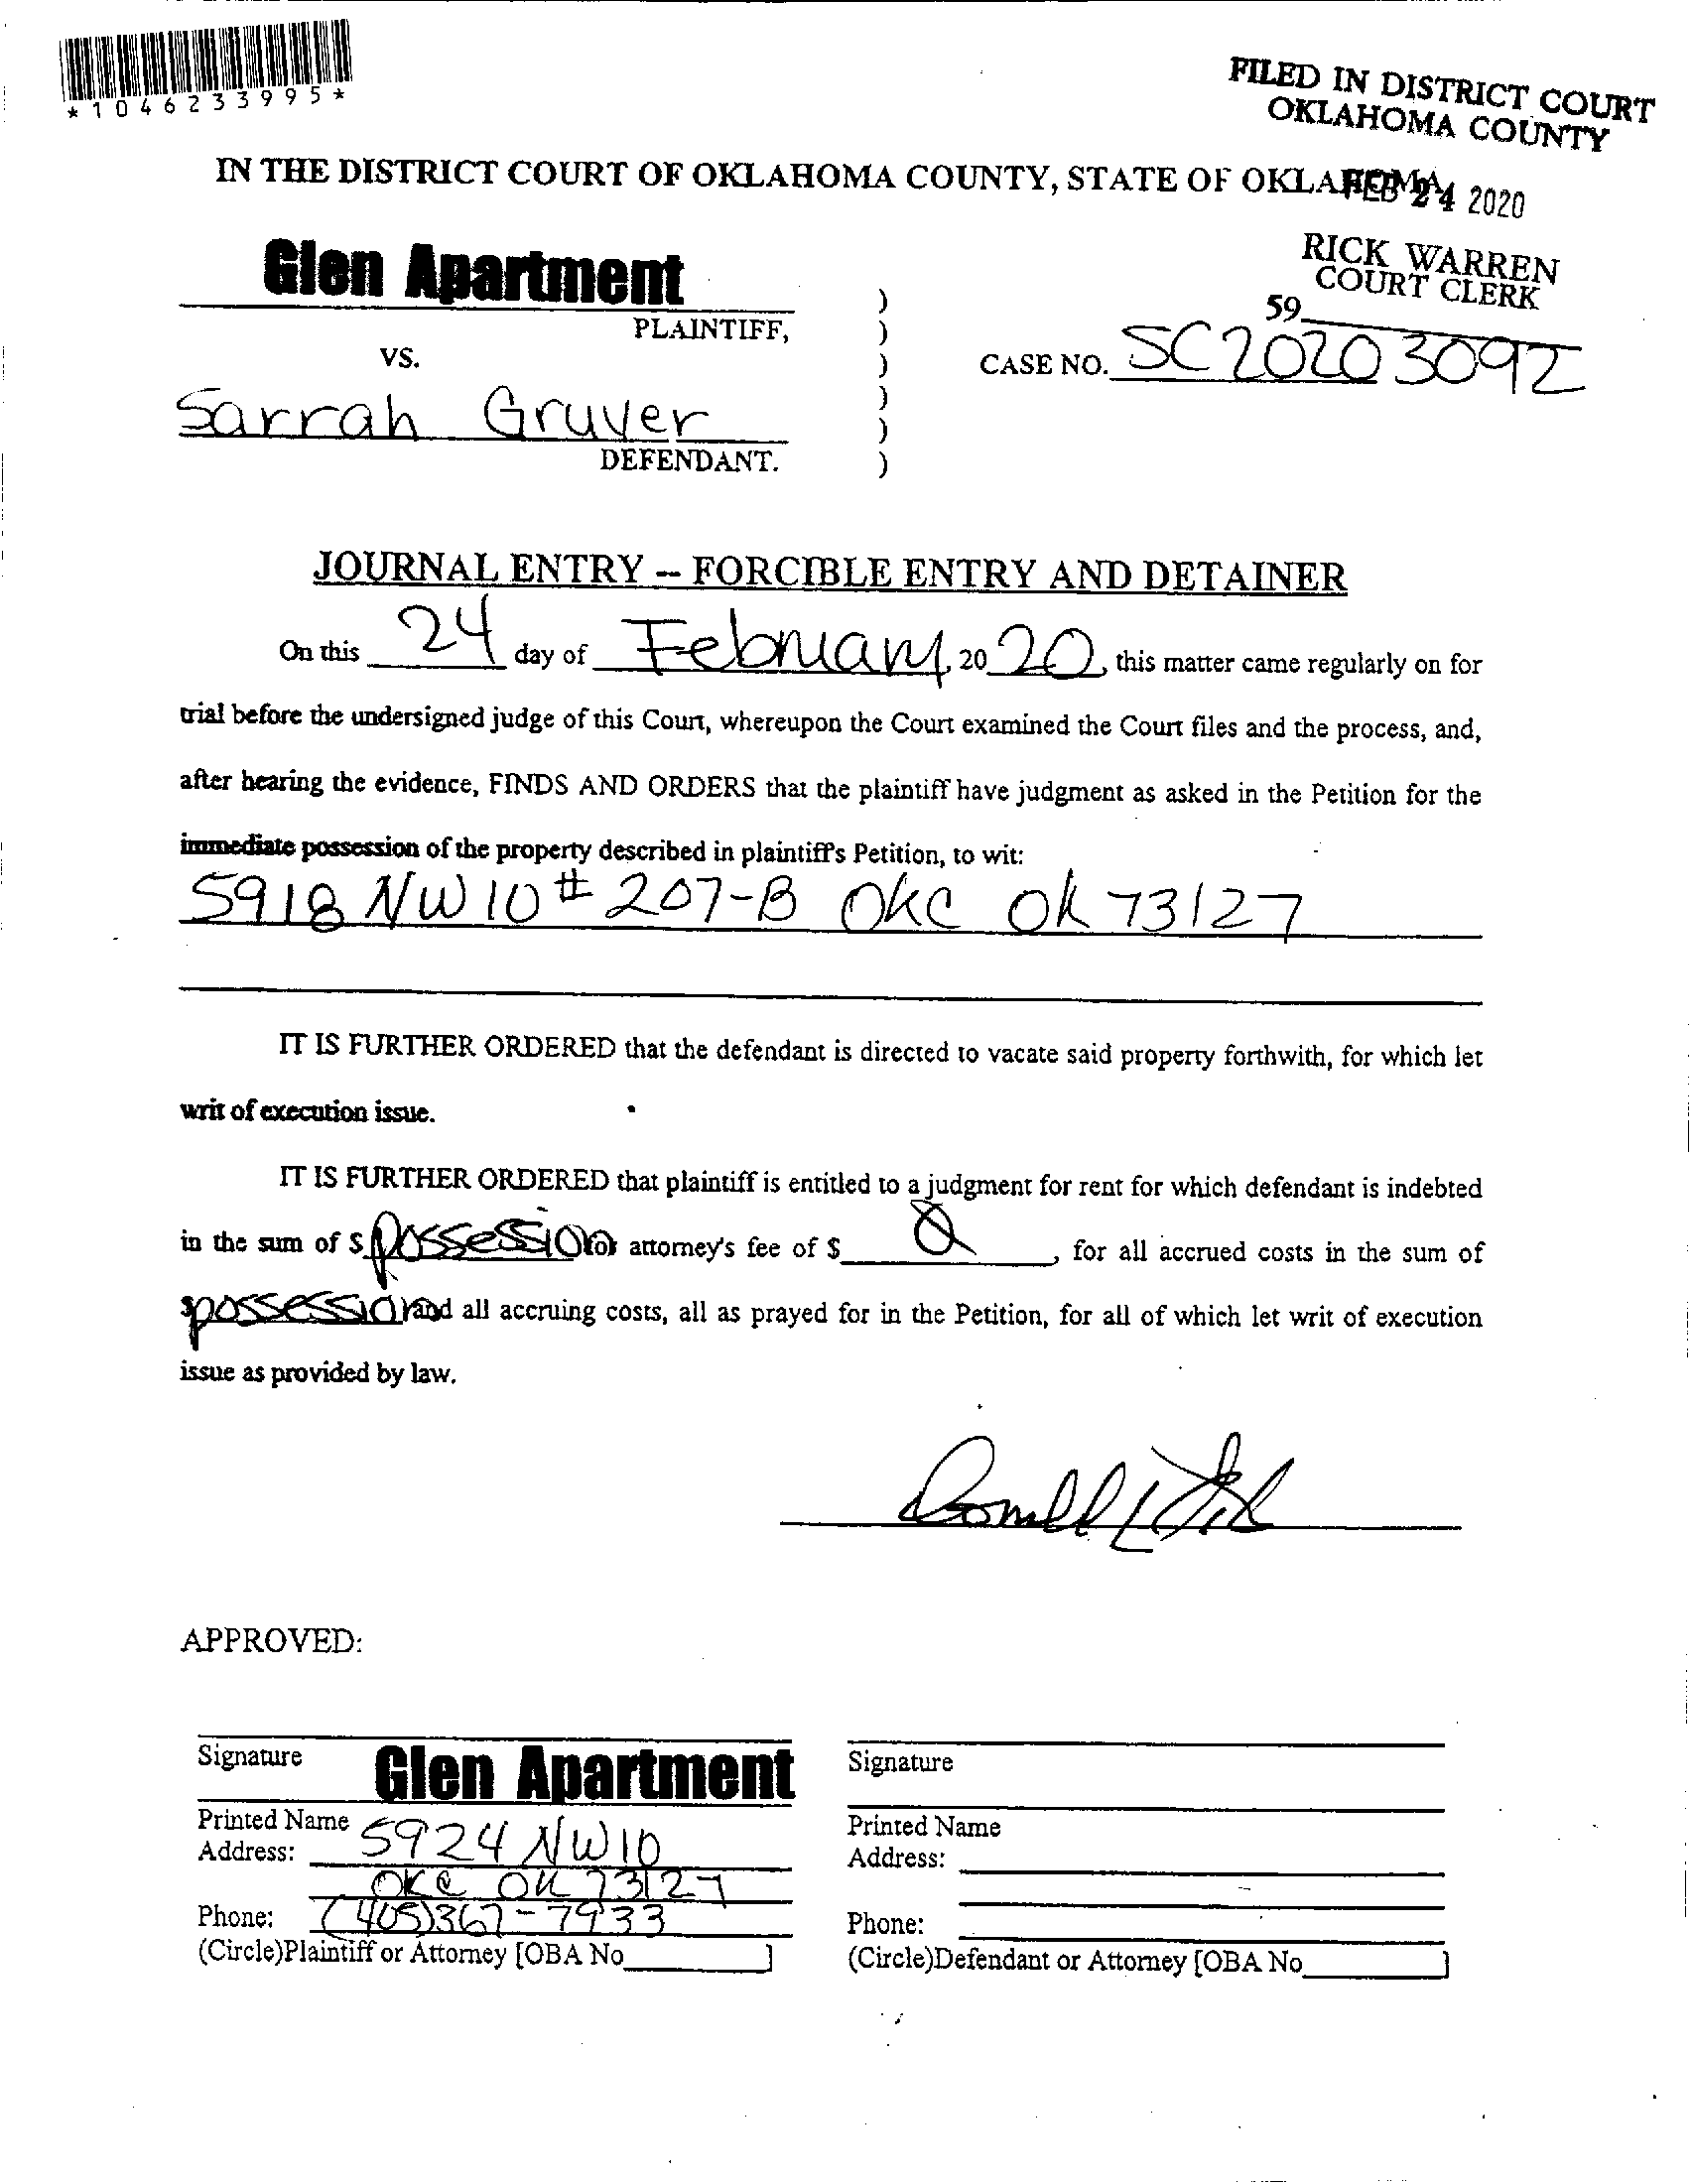 *1046233995*
FILED IN DISTRICT COURT
OKLAHOMA COUNTY
IN THE DISTRICT COURT OF OKLAHOMA COUNTY, STATE OF OKLAHOMA
FEB 24 2020
RICK WARREN
COURT CLERK
59
Glen Apartment
PLAINTIFF,
VS.
CASE NO. SC20203092
Sarrah Gruver
DEFENDANT.
)
)
)
)
)
)
JOURNAL ENTRY -- FORCIBLE ENTRY AND DETAINER
On this 24 day of February, 20 20, this matter came regularly on for
trial before the undersigned judge of this Court, whereupon the Court examined the Court files and the process, and,
after hearing the evidence, FINDS AND ORDERS that the plaintiff have judgment as asked in the Petition for the
immediate possession of the property described in plaintiff's Petition, to wit:
5918 NW 10 # 207-B OKC OK 73127
IT IS FURTHER ORDERED that the defendant is directed to vacate said property forthwith, for which let
writ of execution issue.
IT IS FURTHER ORDERED that plaintiff is entitled to a judgment for rent for which defendant is indebted
in the sum of $ possession for attorney's fee of $ , for all accrued costs in the sum of
$ possession and all accruing costs, all as prayed for in the Petition, for all of which let writ of execution
issue as provided by law.
APPROVED:
Signature
Glen Apartment
Printed Name
Address: 5924 NW 10
OKC OK 73127
Phone: (405)367-7933
(Circle)Plaintiff or Attorney [OBA No ]
Signature
Printed Name
Address:
Phone:
(Circle)Defendant or Attorney [OBA No ]